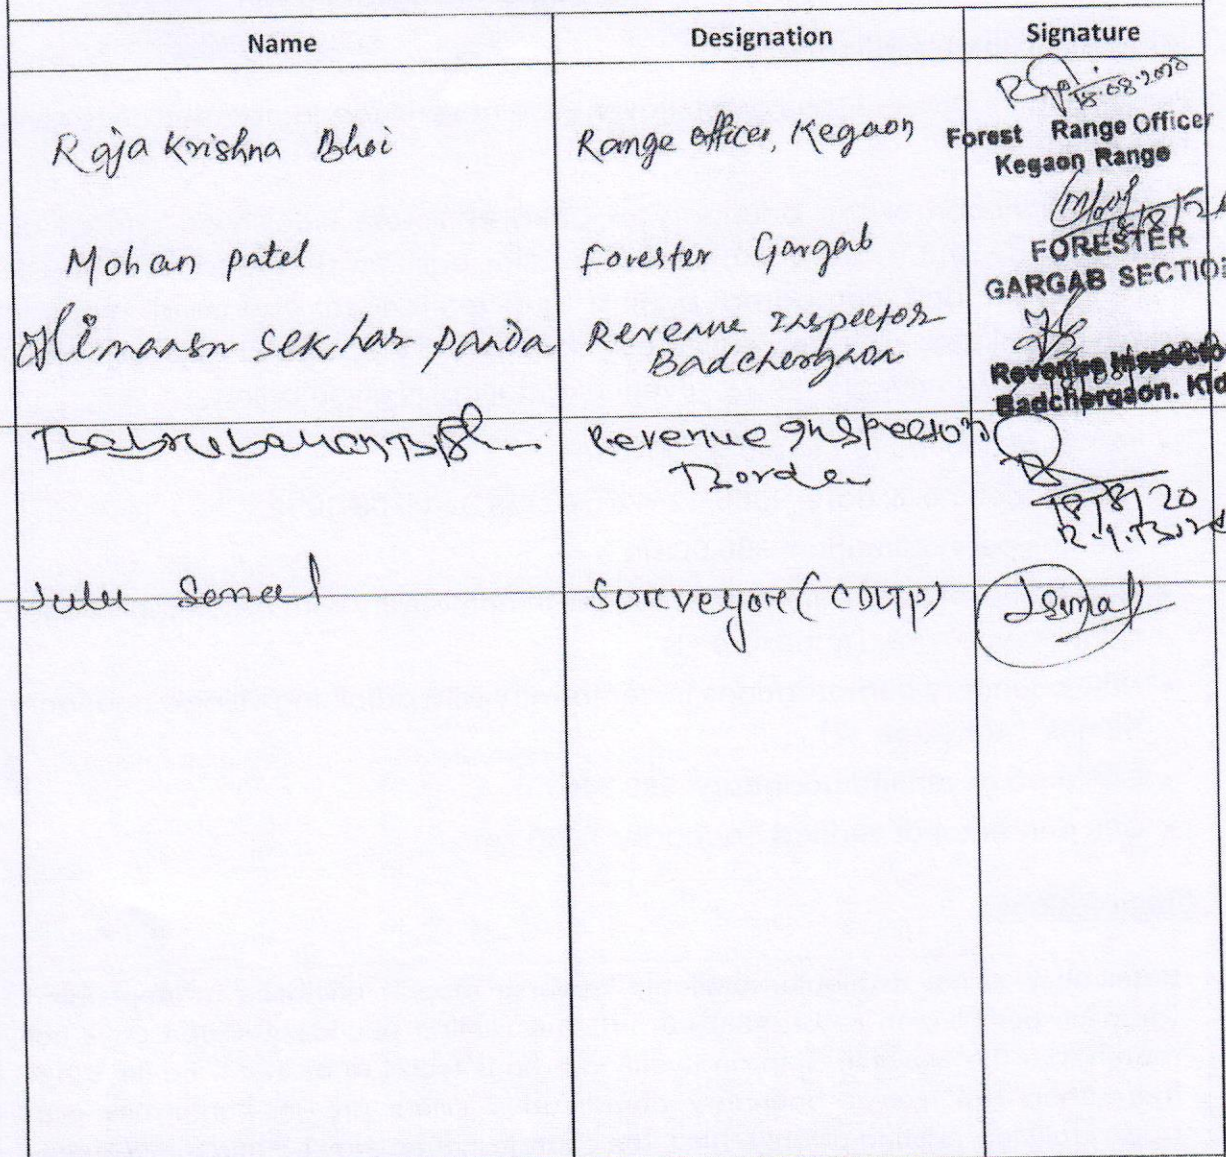 Name Designation Signature
Raja Krishna Bhoi Range Officer, Kegaon
18.08.2020
Forest Range Officer
Kegaon Range
Mohan patel Forester Gargab
18/8/20
FORESTER
GARGAB SECTION
sekhar panda Revenue Inspector
Badchergaon
Revenue Inspector
Badchergaon. Kid
Revenue Inspector
Borde
18/8/20
Julu Semal Surveyore (CDLTP) JSemal